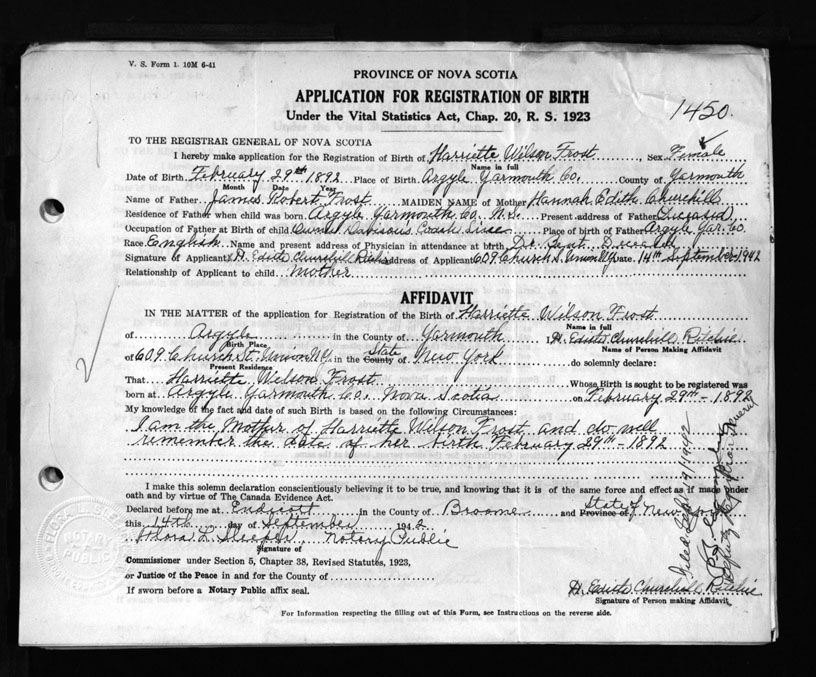 V. S. Form 1. 10M 6-41
PROVINCE OF NOVA SCOTIA
APPLICATION FOR REGISTRATION OF BIRTH
1450.
Under the Vital Statistics Act, Chap. 20, R. S. 1923
TO THE REGISTRAR GENERAL OF NOVA SCOTIA
I hereby make application for the Registration of Birth of Harriette Wilson Frost, Sex Female
Name in full
Date of Birth February 29th 1892 Place of Birth Argyle Yarmouth Co. County of Yarmouth
Month Date Year
Name of Father James Robert Frost MAIDEN NAME of Mother Hannah Edith Churchill
Residence of Father when child was born Argyle Yarmouth Co. N.S. Present address of Father
Occupation of Father at Birth of child Coach Place of birth of Father Argyle Yar. Co.
Race English Name and present address of Physician in attendance at birth Dr.
Signature of Applicant H. Edith Churchill Address of Applicant 609 Church St. Date 14th September 1942
Relationship of Applicant to child Mother
AFFIDAVIT
IN THE MATTER of the application for Registration of the Birth of Harriette Wilson Frost
Name in full
of Argyle in the County of Yarmouth I, H. Edith Churchill Ritchie
Birth Place Name of Person Making Affidavit
of 609 Church St. in the County State of New York do solemnly declare:
Present Residence
That Harriette Wilson Frost Whose Birth is sought to be registered was
born at Argyle Yarmouth Co. Nova Scotia on February 29th - 1892
My knowledge of the fact and date of such Birth is based on the following Circumstances:
I am the Mother of Harriette Wilson Frost and do well
remember the date of her birth February 29th - 1892
I make this solemn declaration conscientiously believing it to be true, and knowing that it is of the same force and effect as if made under
oath and by virtue of The Canada Evidence Act.
Declared before me at Endicott in the County of Broome and Province of State of New York
this 14th day of September 1942
Flora L. Sleeper Notary Public
Signature of
Commissioner under Section 5, Chapter 38, Revised Statutes, 1923,
or Justice of the Peace in and for the County of
If sworn before a Notary Public affix seal.
H. Edith Churchill Ritchie
Signature of Person making Affidavit
For Information respecting the filling out of this Form, see Instructions on the reverse side.
NOTARY
PUBLIC